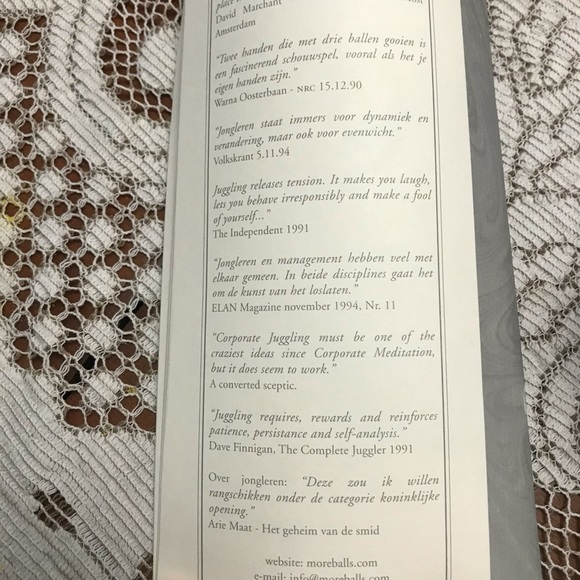 place
David Marchant
Amsterdam
"Twee handen die met drie ballen gooien is
een fascinerend schouwspel, vooral als het je
eigen handen zijn."
Warna Oosterbaan - NRC 15.12.90
"Jongleren staat immers voor dynamiek en
verandering, maar ook voor evenwicht."
Volkskrant 5.11.94
Juggling releases tension. It makes you laugh,
lets you behave irresponsibly and make a fool
of yourself..."
The Independent 1991
"Jongleren en management hebben veel met
elkaar gemeen. In beide disciplines gaat het
om de kunst van het loslaten."
ELAN Magazine november 1994, Nr. 11
"Corporate Juggling must be one of the
craziest ideas since Corporate Meditation,
but it does seem to work."
A converted sceptic.
"Juggling requires, rewards and reinforces
patience, persistance and self-analysis."
Dave Finnigan, The Complete Juggler 1991
Over jongleren: "Deze zou ik willen
rangschikken onder de categorie koninklijke
opening."
Arie Maat - Het geheim van de smid
website: moreballs.com
e-mail: info@moreballs.com